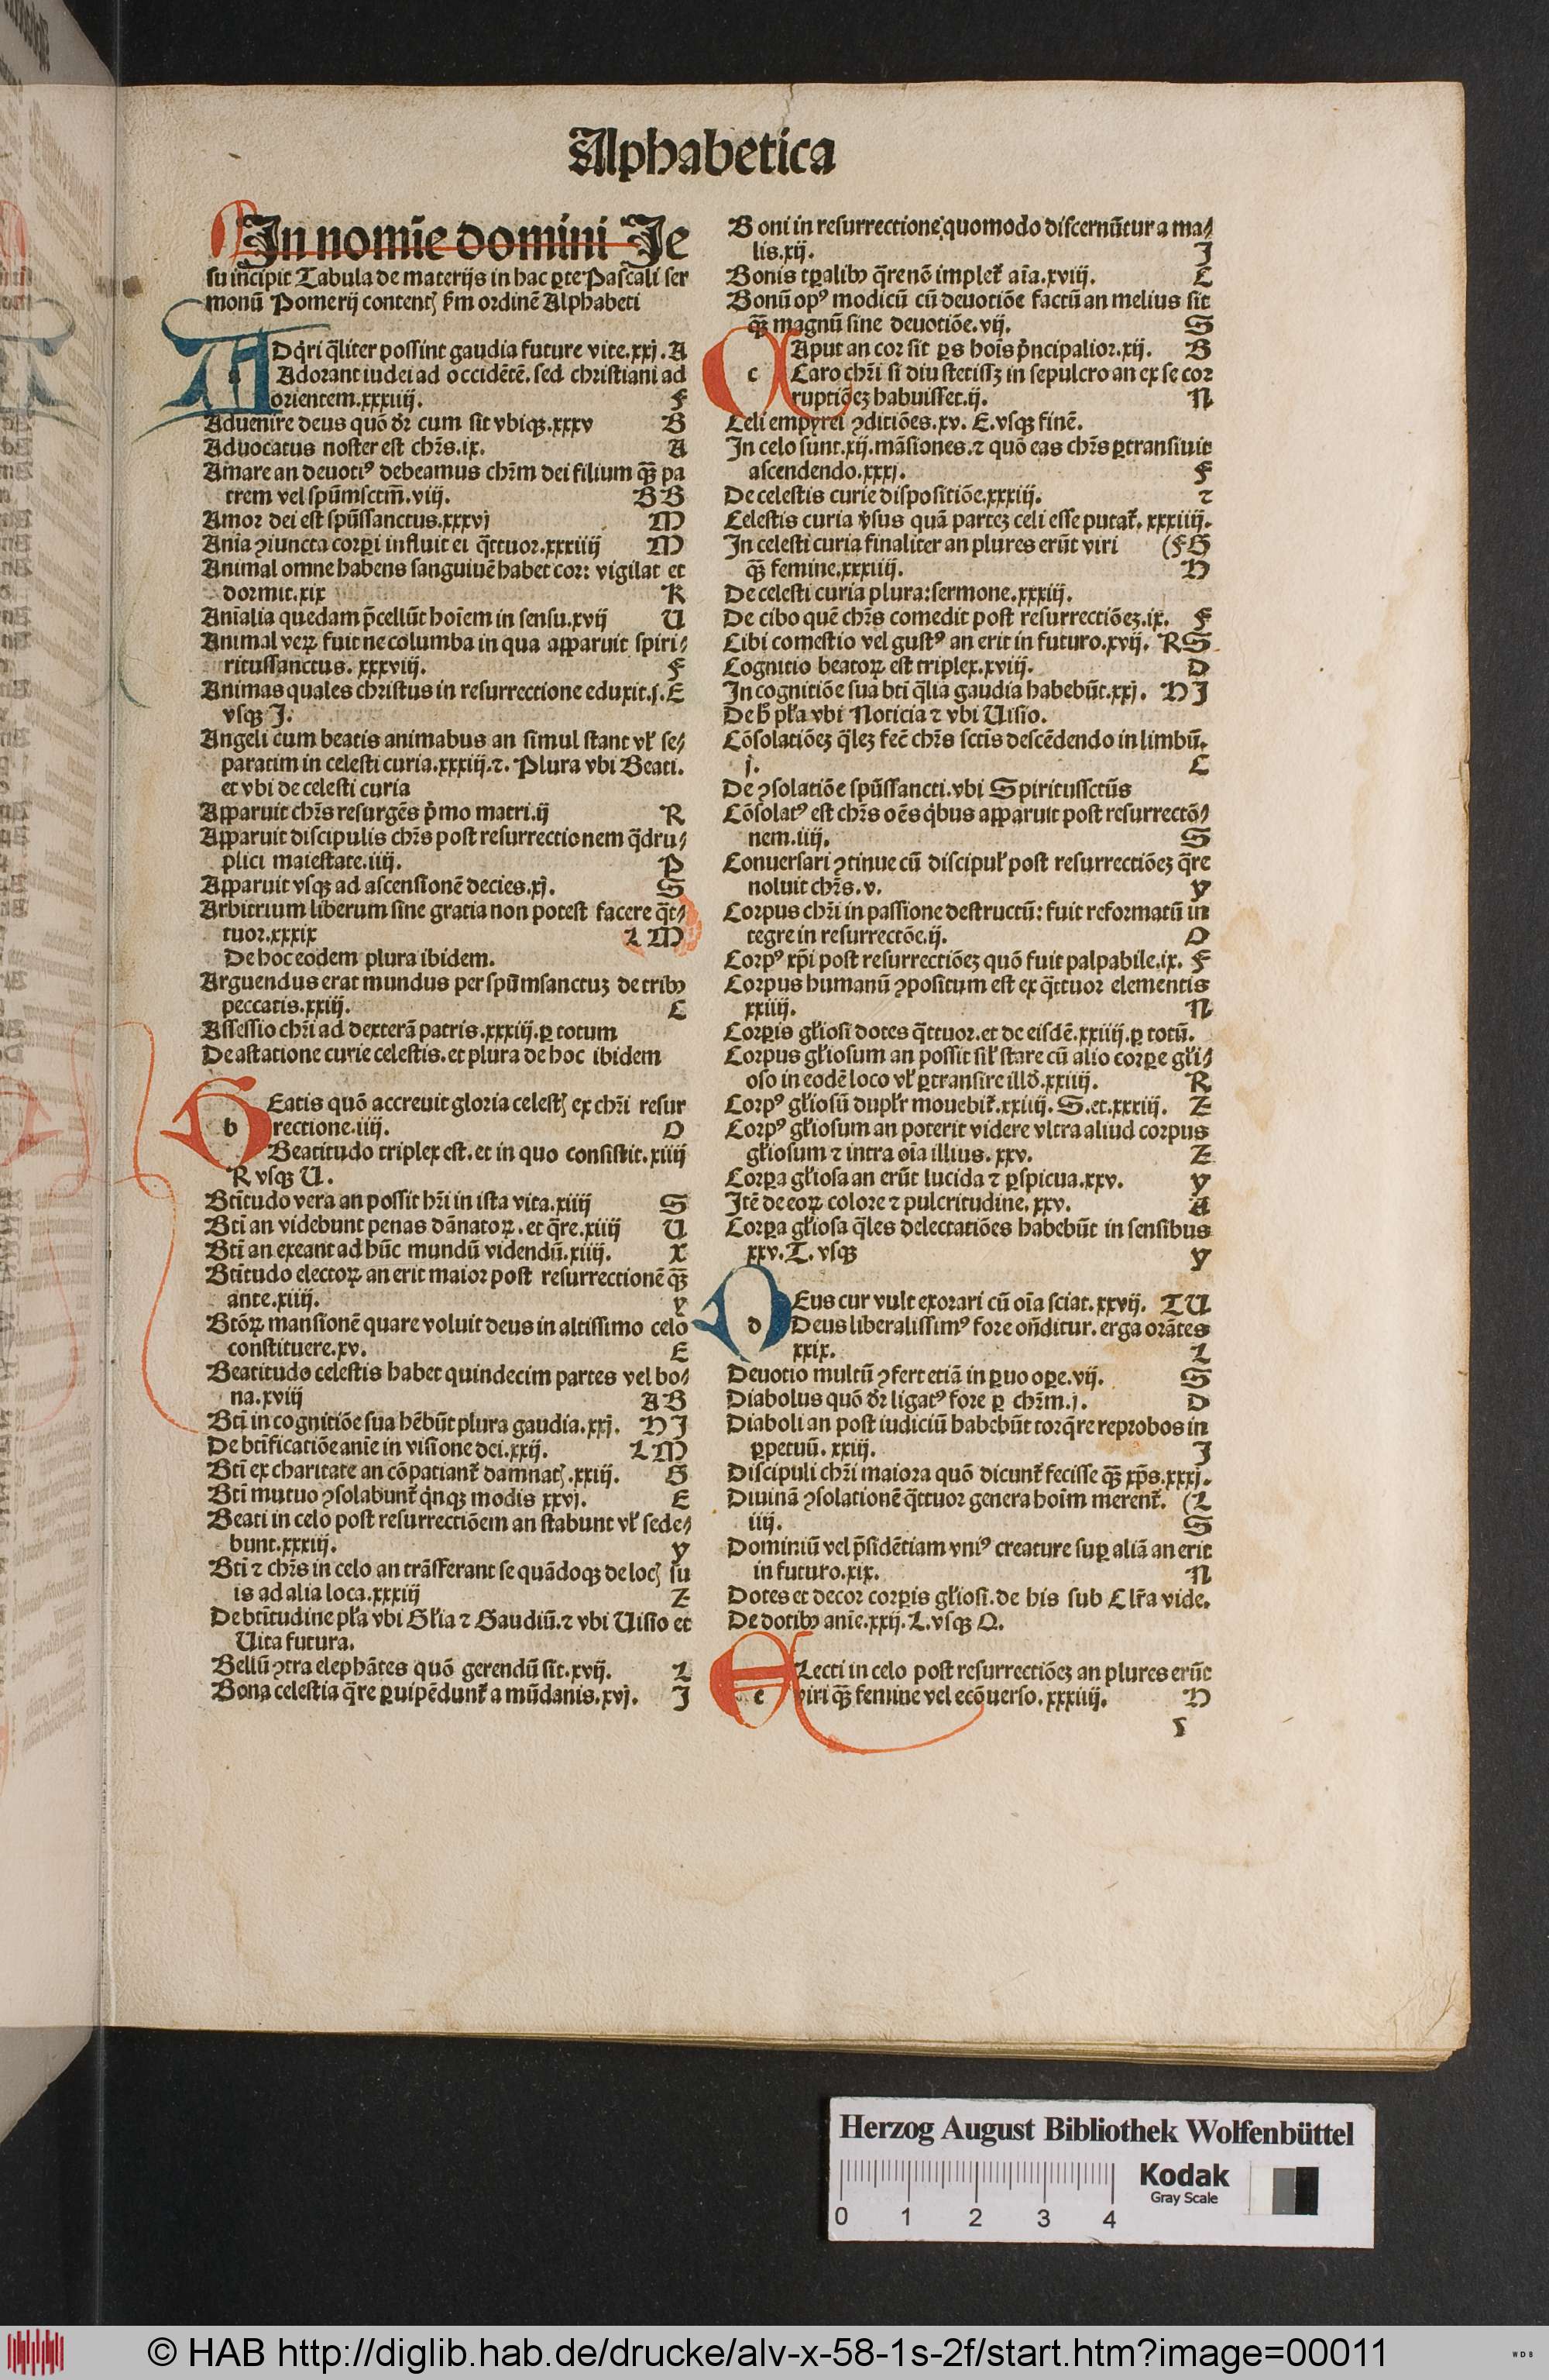 Alphabetica
In nomīe domini Je
su incipit Tabula de materijs in hac ꝑte Pascali ser
monū Pomerij contentꝭ ẜm ordinē Alphabeti
ADq̇ri q̄liter possint gaudia future vite.xxj. A
Adorant iudei ad occidētē. sed christiani ad
orientem.xxxiiij. F
Aduenire deus quō dr̄ cum sit vbiqꝫ.xxxv B
Aduocatus noster est chr̄s.ix. A
Amare an deuotiꝰ debeamus chr̄m dei filium qꝫ̄ pa
trem vel spūmsctm̄.viij. B B
Amor dei est spūssanctus.xxxvj M
Anīa ꝯiuncta corꝑi influit ei q̄ttuor.xxxiiij M
Animal omne habens sanguinē habet cor: vigilat et
dormit.xix R
Anīalia quedam p̄cellūt hoīem in sensu.xvij U
Animal veꝝ fuit ne columba in qua apparuit spiri⸗
ritussanctus. xxxviij. F
Animas quales christus in resurrectione eduxit.j. E
vsqꝫ J.
Angeli cum beatis animabus an simul stant vł se⸗
paratim in celesti curia.xxxiij.⁊. Plura vbi Beati.
et vbi de celesti curia
Apparuit chr̄s resurgēs p̄mo matri.ij R
Apparuit discipulis chr̄s post resurrectionem q̄dru⸗
plici maiestate.iiij. P
Apparuit vsqꝫ ad ascensionē decies.xj. S
Arbitrium liberum sine gratia non potest facere q̄t⸗
tuor.xxxix L M
De hoc eodem plura ibidem.
Arguendus erat mundus per spūmsanctuꝫ de tribꝰ
peccatis.xxiij. C
Assessio chr̄i ad dexterā patris.xxxiij.ꝑ totum
De astatione curie celestis. et plura de hoc ibidem
BEatis quō accreuit gloria celestꝭ ex chr̄i resur
b rectione.iiij. O
Beatitudo triplex est. et in quo consistit.xiiij
R vsqꝫ U.
Btītudo vera an possit hr̄i in ista vita.xiiij S
Btī an videbunt penas dānatoꝝ. et q̄re.xiiij U
Btī an exeant ad hūc mundū videndū.xiiij. X
Btītudo electoꝝ an erit maior post resurrectionē qꝫ̄
ante.xiiij. y
Btōꝝ mansionē quare voluit deus in altissimo celo
constituere.xv. E
Beatitudo celestis habet quindecim partes vel bo⸗
na.xviij A B
Btī in cognitiōe sua hēbūt plura gaudia.xxj. H J
De btīficatiōe anīe in visione dei.xxij. L M
Btī ex charitate an cōpatiant̄ damnatꝭ.xxiij. G
Btī mutuo ꝯsolabunt̄ q̇nqꝫ modis xxvj. E
Beati in celo post resurrectiōem an stabunt vł sede⸗
bunt.xxxiij. y
Btī ⁊ chr̄s in celo an trāsferant se quādoqꝫ de locꝭ su
is ad alia loca.xxxiij Z
De btītudine pła vbi Głia ⁊ Gaudiū.⁊ vbi Uisio et
Uita futura.
Bellū ꝯtra elephātes quō gerendū sit.xvij. L
Bona celestia q̄re ꝑuipēdunt̄ a mūdanis.xvj. J
Boni in resurrectione quomodo discernūtur a ma⸗
lis.xij. J
Bonis tꝑalibꝰ q̄re nō implet̄ aīa.xviij. C
Bonū opꝰ modicū cū deuotiōe factū an melius sit
qꝫ̄ magnū sine deuotiōe.vij. S
CAput an cor sit ꝑs hoīs p̄ncipalior.xij. B
c Caro chr̄i si diu stetissꝫ in sepulcro an ex se cor
ruptiōeꝫ habuisset.ij. N
Celi empyrei ꝯditiōes.xv. E. vsqꝫ finē.
In celo sunt.xij.māsiones.⁊ quō eas chr̄s ꝑtransiuit
ascendendo.xxxj. F
De celestis curie dispositiōe.xxxiij. ⁊
Celestis curia v̄sus quā parteꝫ celi esse putat̄. xxxiiij.
In celesti curia finaliter an plures erūt viri (F G
qꝫ̄ femine.xxxiiij. H
De celesti curia plura: sermone.xxxiij.
De cibo quē chr̄s comedit post resurrectiōeꝫ.ix. F
Cibi comestio vel gustꝰ an erit in futuro.xvij. R S
Cognitio beatoꝝ est triplex.xviij. D
In cognitiōe sua btī q̄lia gaudia habebūt.xxj. H J
De h̄ pła vbi Noticia ⁊ vbi Uisio.
Cōsolatiōeꝫ q̄leꝫ fec̄ chr̄s sctīs descēdendo in limbū.
j. C
De ꝯsolatiōe spūssancti. vbi Spiritussctūs
Cōsolatꝰ est chr̄s oēs q̇bus apparuit post resurrectō⸗
nem.iiij. S
Conuersari ꝯtinue cū discipuł post resurrectiōeꝫ q̄re
noluit chr̄s.v. y
Corpus chr̄i in passione destructū: fuit reformatū in
tegre in resurrectōe.ij. O
Corpꝰ xp̄i post resurrectiōeꝫ quō fuit palpabile.ix. F
Corpus humanū ꝯpositum est ex q̄ttuor elementis
xxiiij. N
Corꝑis głiosi dotes q̄ttuor. et de eisdē.xxiiij.ꝑ totū.
Corpus głiosum an possit sił stare cū alio corꝑe głi⸗
oso in eodē loco vł ꝑtransire illō.xxiiij. R
Corpꝰ głiosū dupłr mouebit̄.xxiiij. S. et.xxxiij. Z
Corpꝰ głiosum an poterit videre vltra aliud corpus
głiosum ⁊ intra oīa illius. xxv. Z
Corꝑa głiosa an erūt lucida ⁊ ꝑspicua.xxv. y
Itē de eoꝝ colore ⁊ pulcritudine. xxv. A
Corꝑa głiosa q̄les delectatiōes habebūt in sensibus
xxv. T. vsqꝫ y
DEus cur vult exorari cū oīa sciat.xxvij. T U
d Deus liberalissimꝰ fore on̄ditur. erga orātes
xxix. L
Deuotio multū ꝯfert etiā in ꝑuo oꝑe.vij. S
Diabolus quō dr̄ ligatꝰ fore ꝑ chr̄m.j. D
Diaboli an post iudiciū habebūt torq̄re reprobos in
ꝑpetuū. xxiij. J
Discipuli chr̄i maiora quō dicunt̄ fecisse qꝫ̄ xp̄s.xxxj.
Diuinā ꝯsolationē q̄ttuor genera hoīm merent̄. (L
iiij. S
Dominiū vel p̄sidētiam vniꝰ creature suꝑ aliā an erit
in futuro.xix. N
Dotes et decor corꝑis głiosi. de his sub C lr̄a vide.
De dotibꝰ anīe.xxij. L. vsqꝫ Q.
ELecti in celo post resurrectiōeꝫ an plures erūt
e viri qꝫ̄ femine vel ecōuerso. xxxiiij. H
Herzog August Bibliothek Wolfenbüttel
Kodak
Gray Scale
0 1 2 3 4
© HAB http://diglib.hab.de/drucke/alv-x-58-1s-2f/start.htm?image=00011
WDB